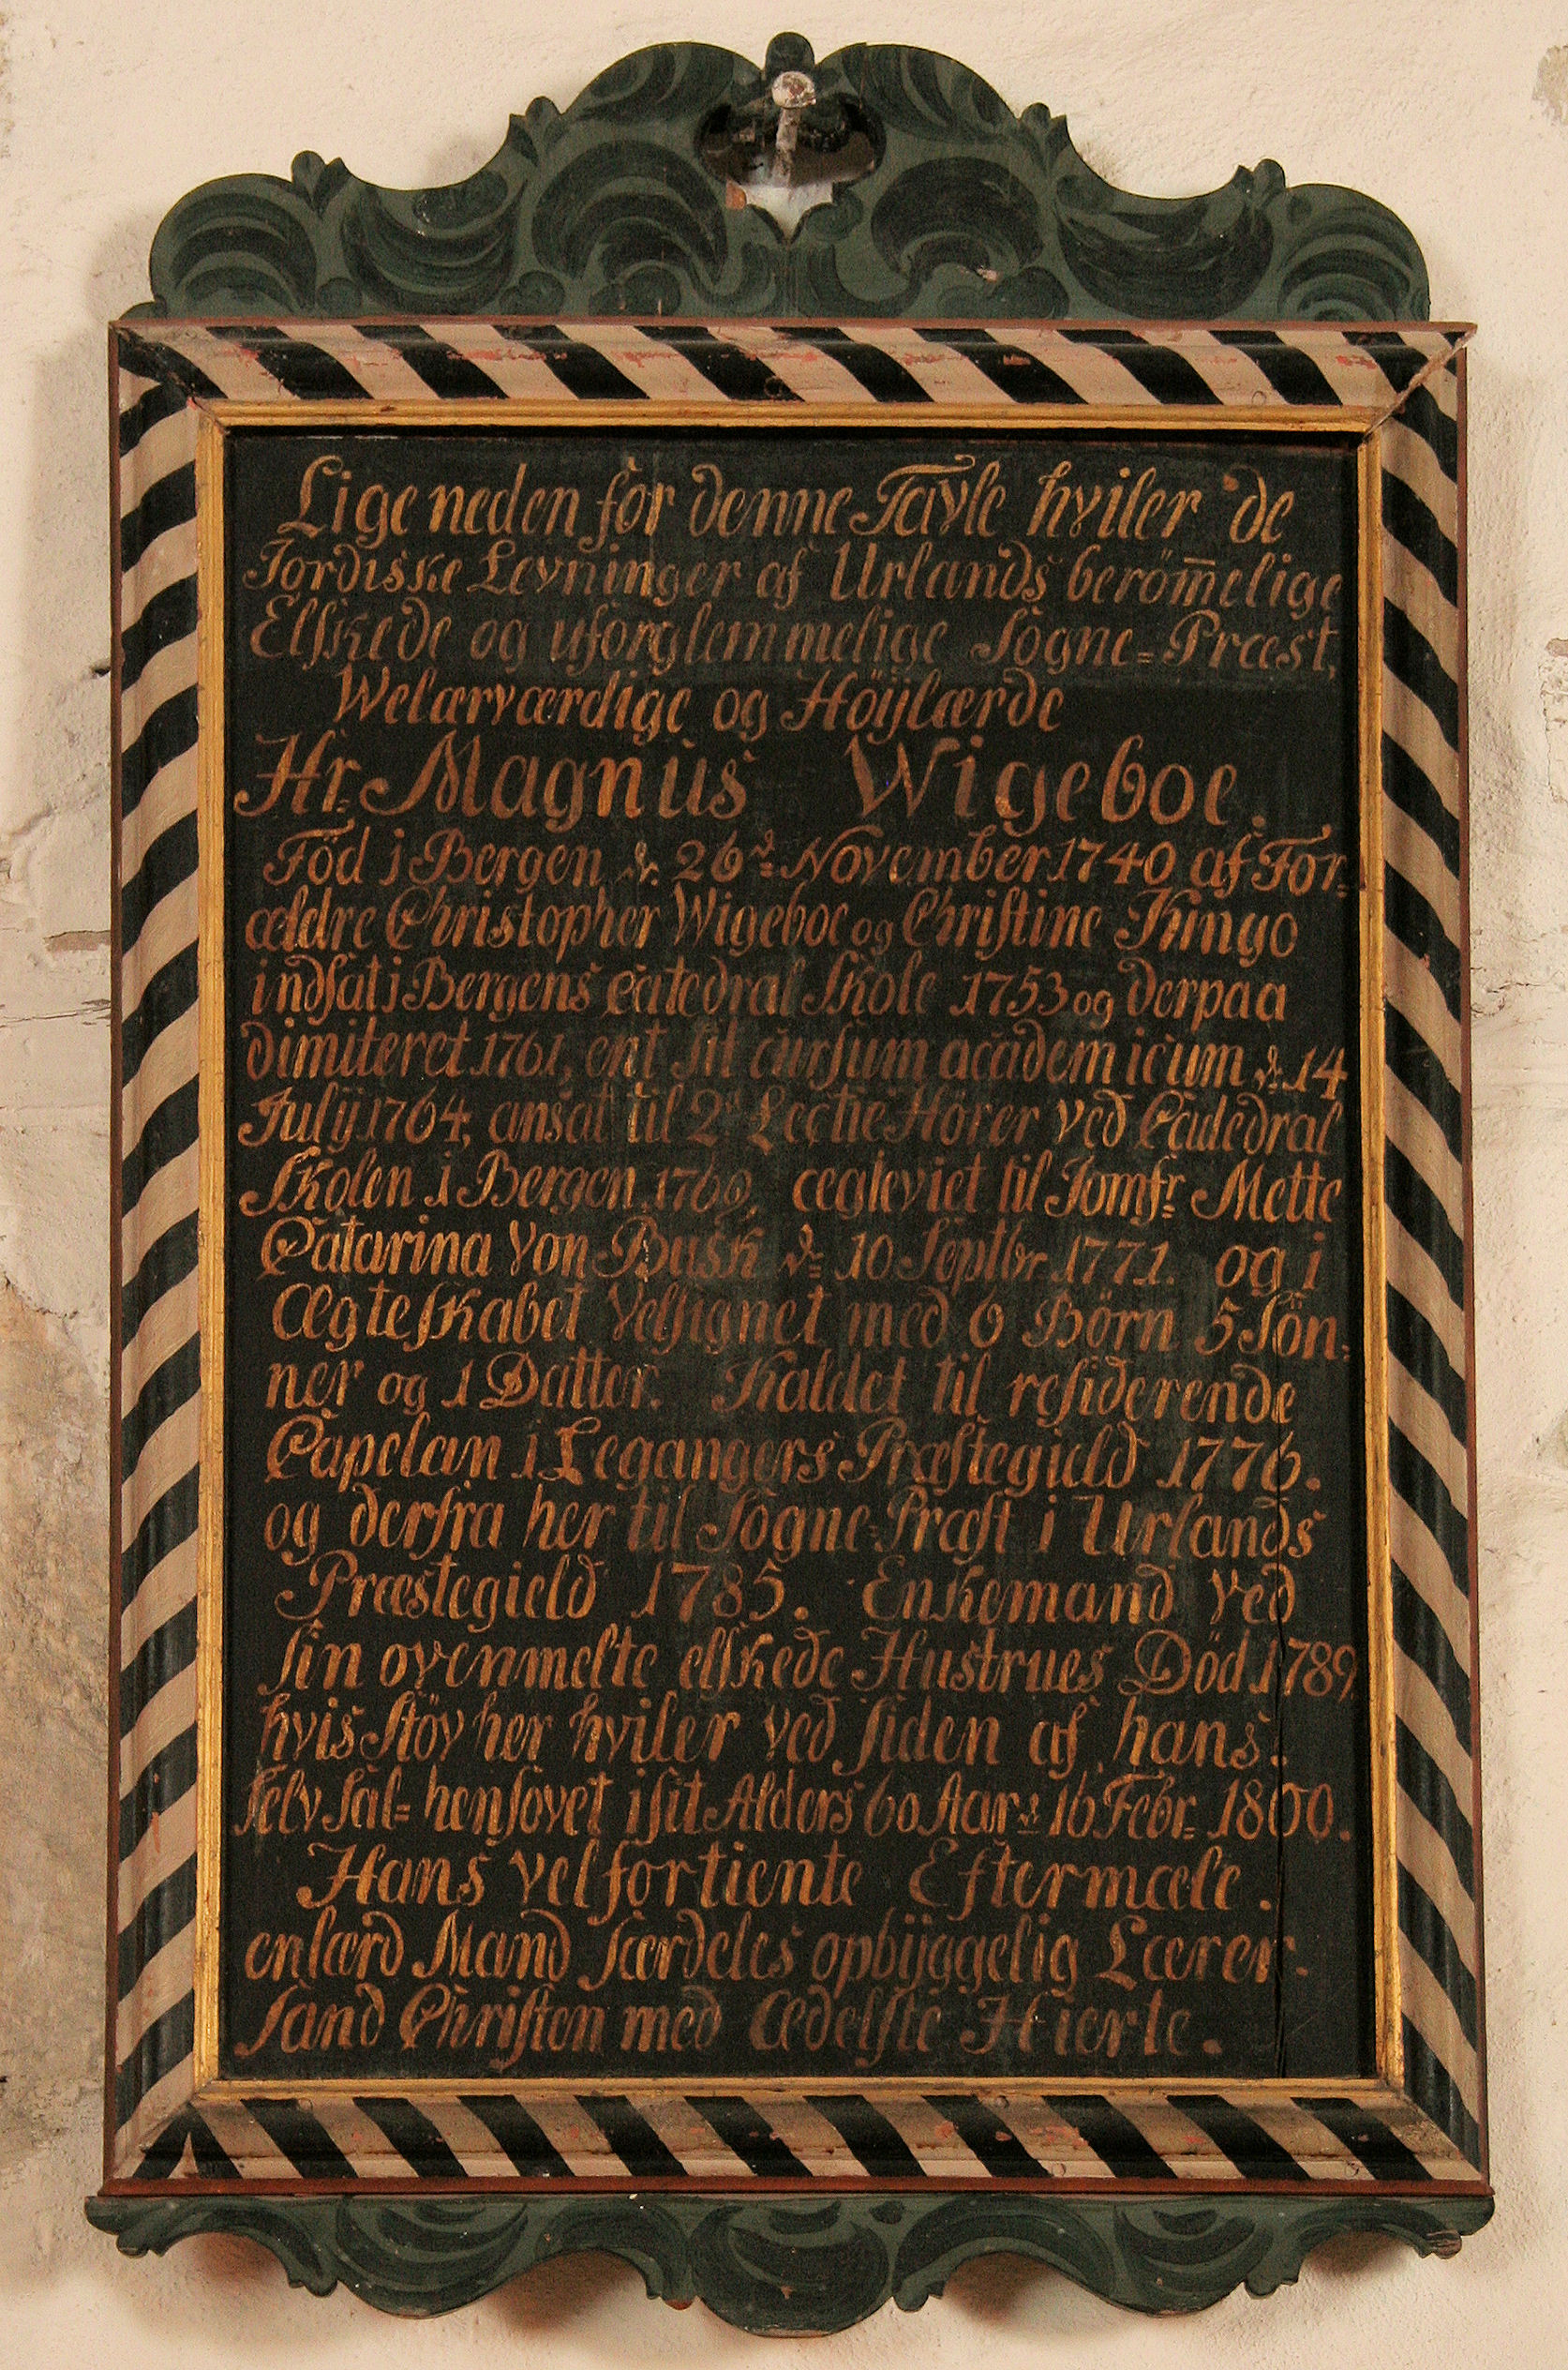 Lige neden for denne Tavle hviler de
Jordiske Levninger af Urlands beröm̅elige
Elskede og uforglemmelige Sogne=Præst,
Welærværdige og Höijlærde
Hr. Magnus Wigeboe.
Föd i Bergen d. 26d. November 1740 af For=
ældre Christopher Wigeboe og Christine Kingo
indsat i Bergens Catedral Skole 1753 og derpaa
dimiteret 1761, ent sit cursum academicum d. 14
Julij 1764, ansat til 2d Lectie Hörer ved Catedral
Skolen i Bergen 1769, ægteviet til Jomfr. Mette
Catarina Von Busk d. 10 Septbr 1771. og i
Ægteskabet Velsignet med 6 Börn 5 Sön=
ner og 1 Datter. Kaldet til residerende
Capelan i Legangers Præstegield 1776.
og derfra her til Sogne=Præst i Urlands
Præstegield 1785. Enkemand ved
sin ovenmelte elskede Hustrues Död 1789,
hvis Stöv her hviler ved siden af hans.
selv Sal= hensovet i sit Alders 60 Aar d. 16 Febr. 1800.
Hans velfortiente Eftermæle.
en lærd Mand særdeles opbijggelig Lærer.
sand Christen med ædelste Hierte.